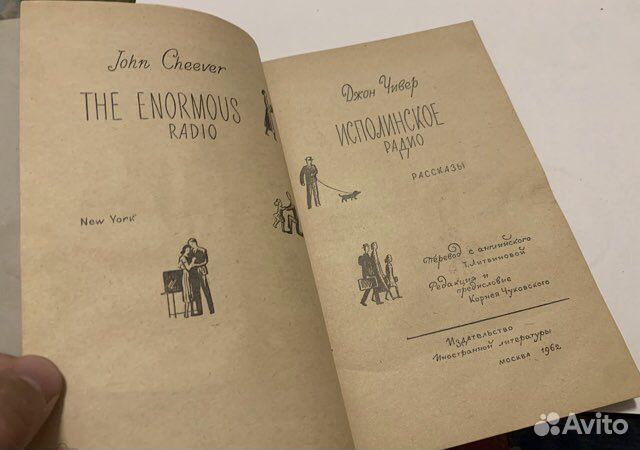 John Cheever
THE ENORMOUS
RADIO
New York
Джон Чивер
ИСПОЛИНСКОЕ
РАДИО
РАССКАЗЫ
Перевод с английского
Т. Литвиновой
Редакция и
предисловие
Корнея Чуковского
Издательство
Иностранной литературы
МОСКВА 1962
Avito